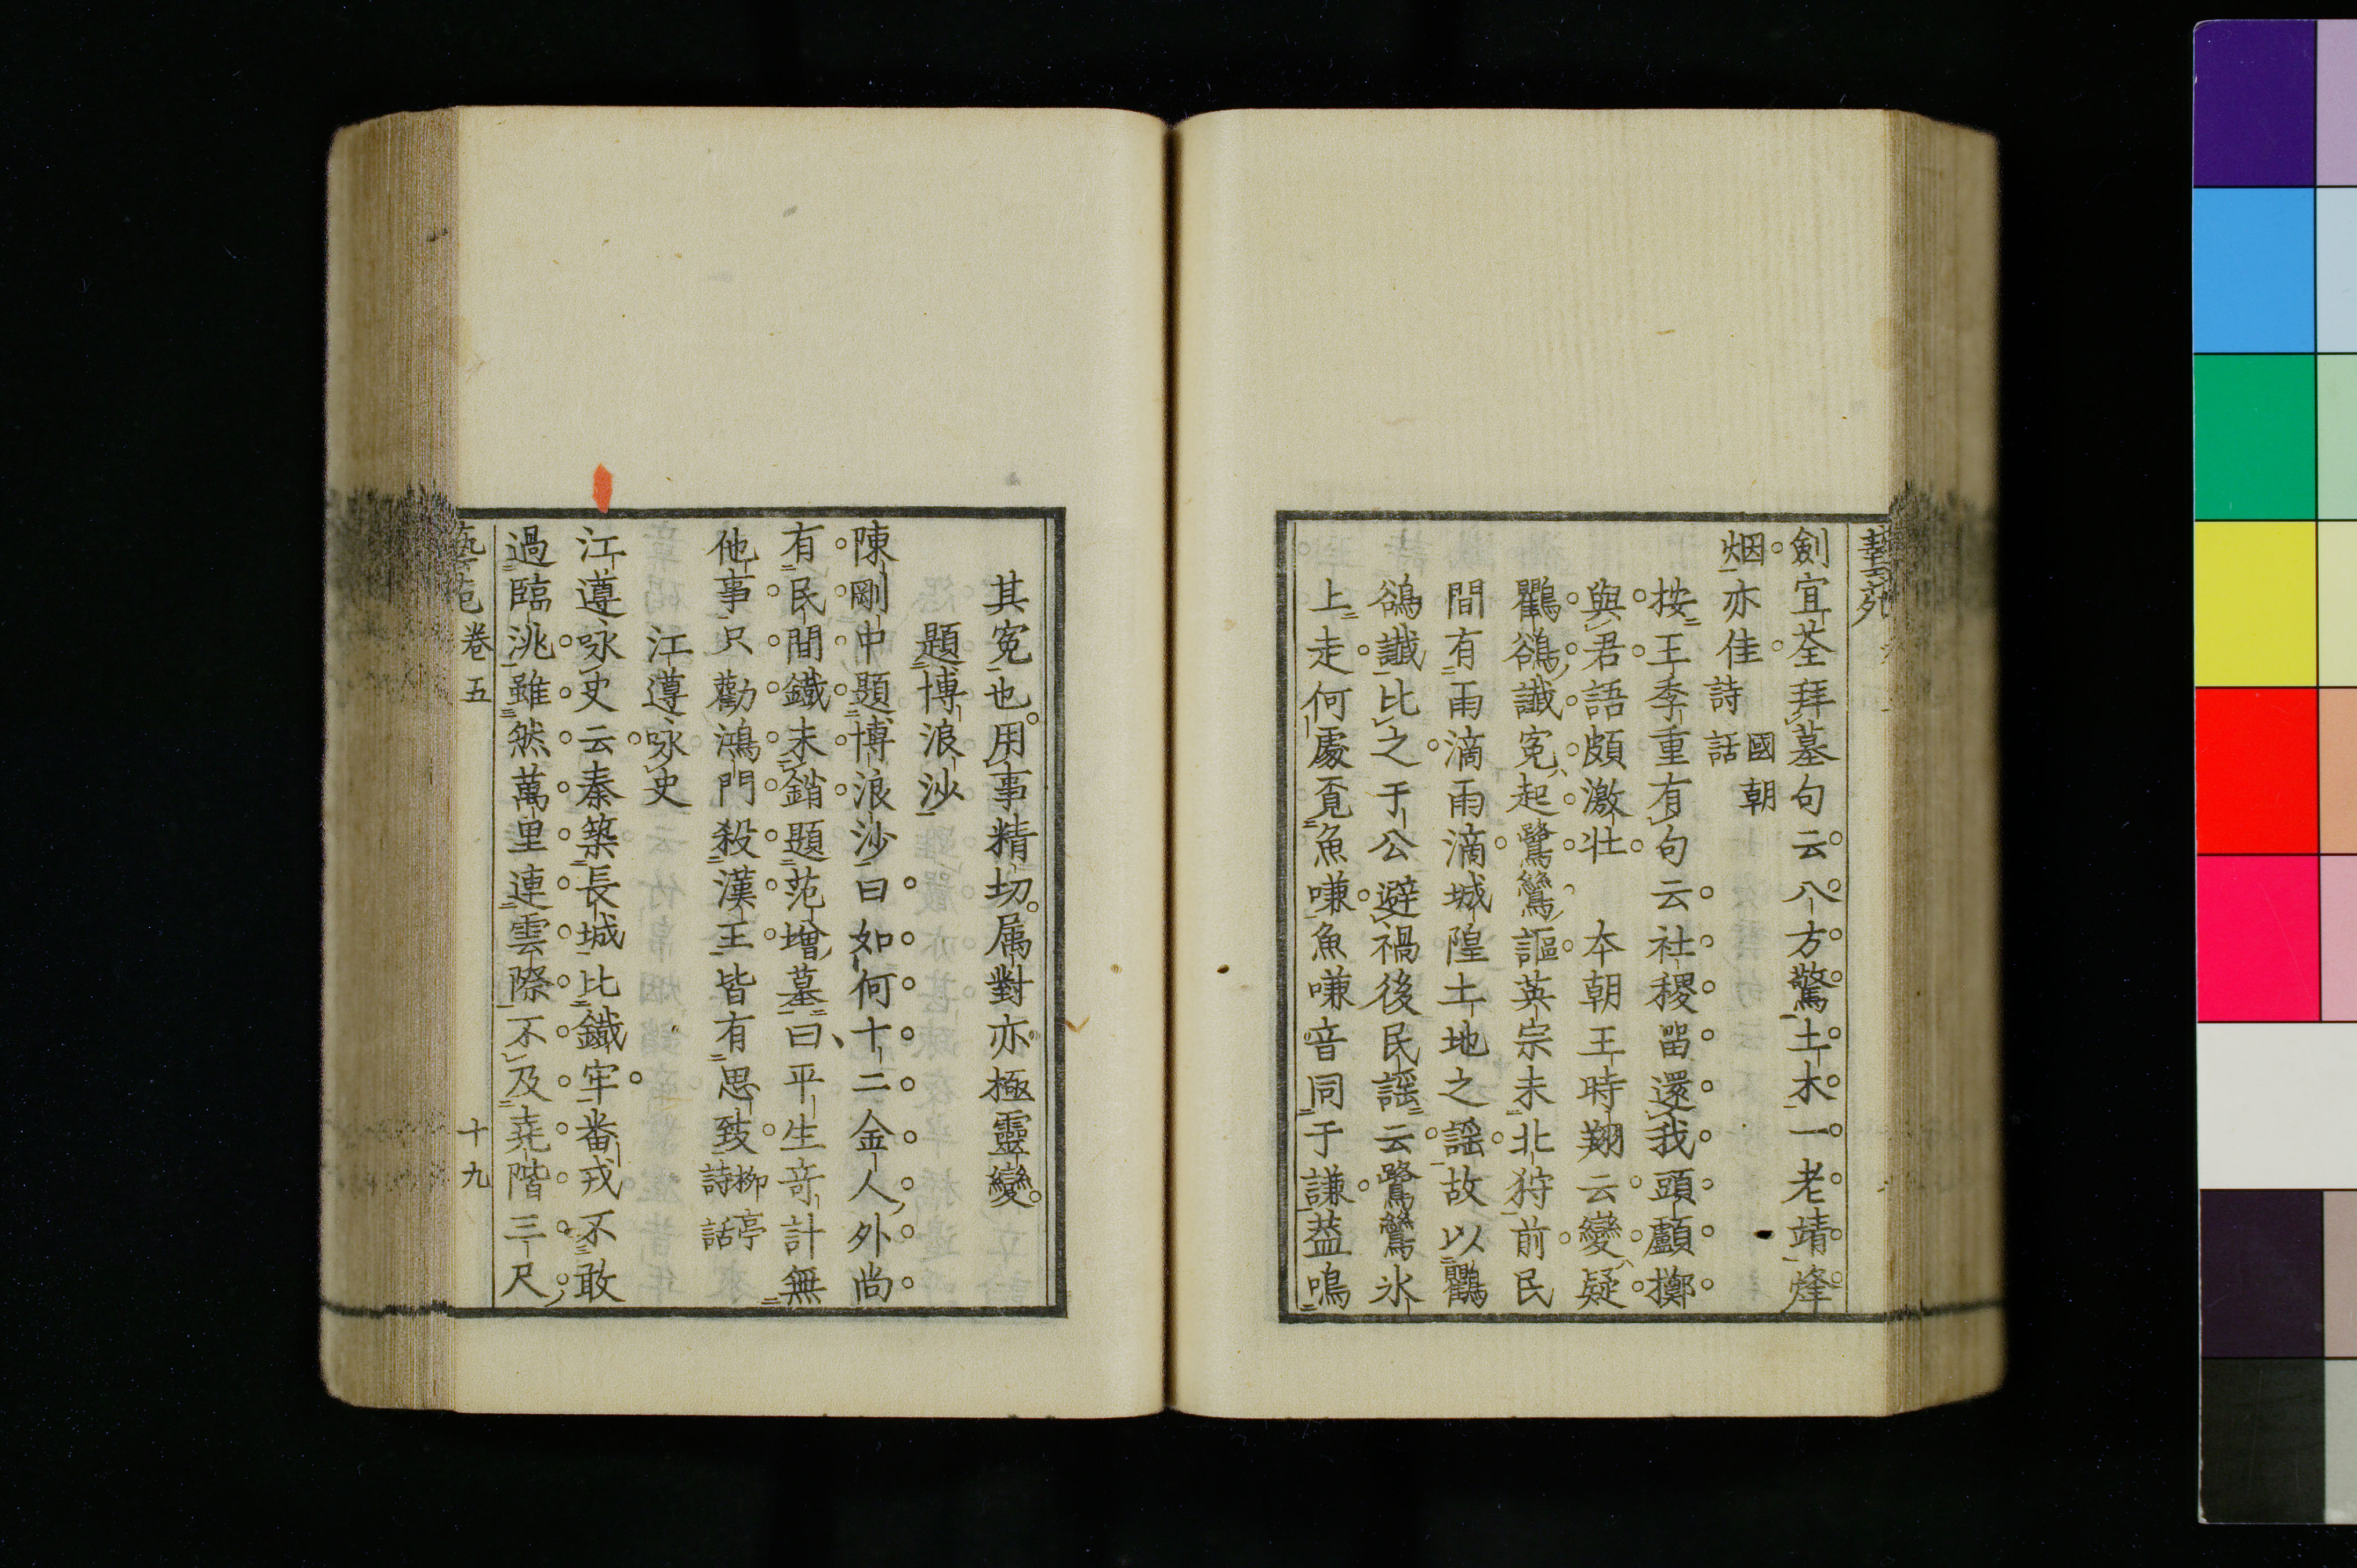 藝苑
劍宜荃拜墓句云八方驚土木一老靖烽
烟亦佳國朝詩話
按王季重有句云社稷畱還我頭顱擲
與君語頗激壯　本朝王時翔云變疑
鸜鵒讖冤起鷺鷥謳英宗未北狩前民
間有雨滴雨滴城隍土地之謡故以鸜
鵒讖比之于公避禍後民謡云鷺鷥氷
上走何處覔魚嗛魚嗛音同于謙葢鳴
其冤也用事精切属對亦極靈變
題博浪沙
陳剛中題博浪沙曰如何十二金人外尚
有民間鐵未銷題范增墓曰平生竒計無
他事只勸鴻門殺漢王皆有思致柳亭詩話
江遵咏史
江遵咏史云秦築長城比鐵牢番戎不敢
過臨洮雖然萬里連雲際不及堯階三尺
藝苑　卷五　十九